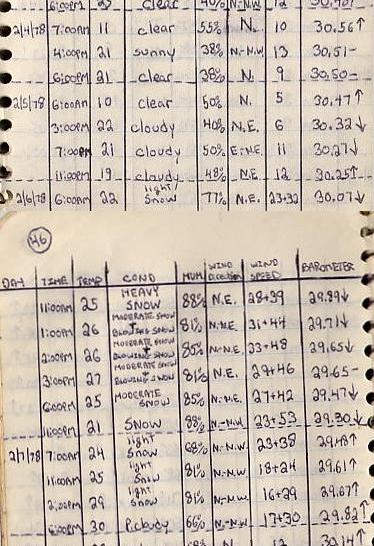 6:00PM 23 clear 40% N.-N.W. 12
2/4/78 7:00AM 11 clear 55% N. 10 30.56↑
4:00PM 21 sunny 38% N.-N.W. 13 30.51-
6:00PM 21 clear 38% N 9 30.50-
2/5/78 6:00AM 10 clear 50% N. 5 30.47↑
3:00PM 22 cloudy 40% N.E. 6 30.32↓
7:00PM 21 cloudy 50% E.-N.E. 11 30.27↓
11:00PM 19 cloudy 48% N.E. 12 30.25↑
2/6/78 6:00AM 22 light/snow 77% N.E. 23+32 30.07↓
46
DAY TIME TEMP COND HUM WIND Direction WIND SPEED BAROMETER
11:00AM 25 HEAVY SNOW 88% N.E. 28+39 29.89↓
1:00PM 26 MODERATE SNOW + BLOWING SNOW 81% N.-N.E. 31+44 29.71↓
2:00PM 26 MODERATE SNOW + BLOWING SNOW 85% N.-N.E. 23+48 29.65↓
3:00PM 27 MODERATE SNOW + BLOWING SNOW 81% N.E. 29+46 29.65-
6:00PM 25 MODERATE SNOW 85% N.-N.E. 27+42 29.47↓
11:00PM 21 SNOW 88% N.-N.W. 23+53 29.30↓
2/7/78 7:00AM 24 light snow 68% N.-N.W. 23+38 29.48↑
11:00AM 25 light snow 81% N.-N.W. 18+24 29.61↑
2:00PM 29 light snow 81% N.-N.W. 16+29 29.67↑
6:00PM 30 P.cloudy 66% N.-N.W. 17+30 29.82↑
12 30.14↑